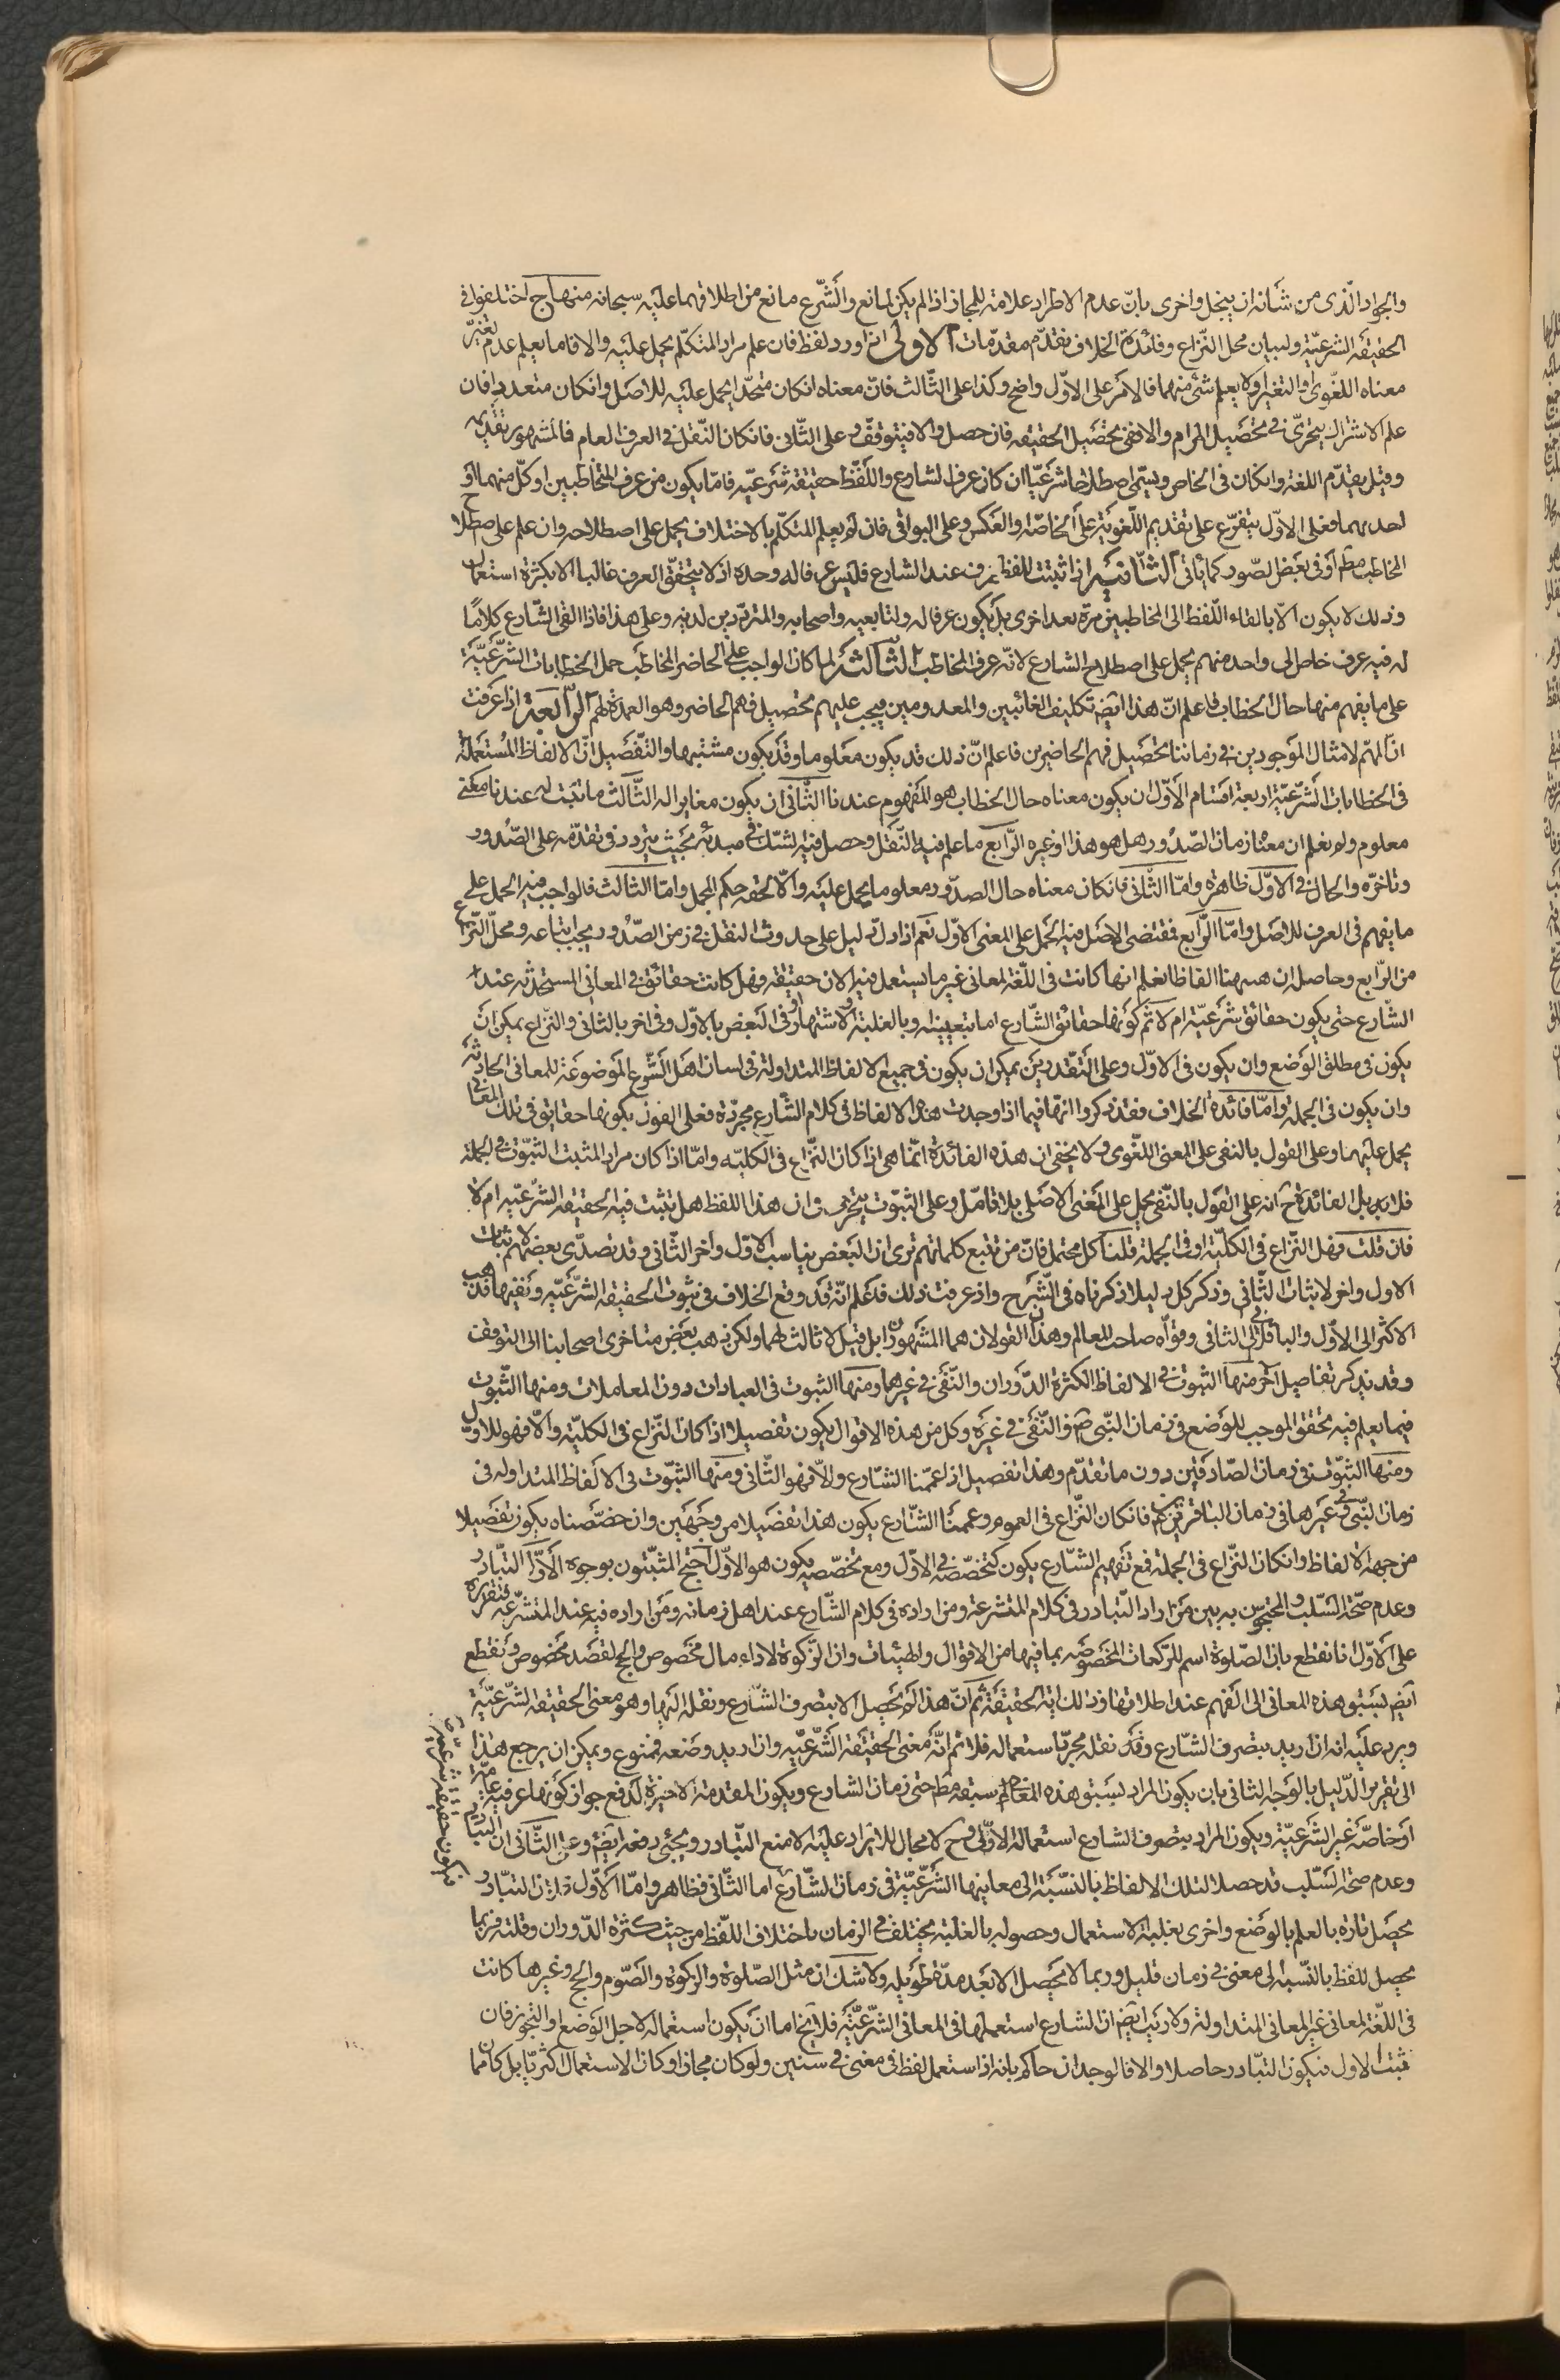 والجواد الّذى من شأنه ان يبخل واخرى بانّ عدم الاطراد علامة للمجاز اذا لم يكن لمانع والشّرع مانع من اطلاقهما عليه سبحانه منهاج اختلفوا فى
الحقيقة الشرعيّة ولبيان محل النّزاع وفائدة الخلاف نقدّم مقدّمات الاولى اذا ورد لفظ فان علم مراد المتكلّم يحمل عليه والا فاما يعلم عدم تغيّر
معناه اللغوى او التغير او لا يعلم شئ منهما فالامر على الاوّل واضح وكذا على الثّالث فانّ معناه انكان متحدا يحمل عليه للاصل وانكان متعددا فان
علم الاشتراك يتحرّى فى تحصيل المرام والا ففى تحصيل الحقيقه فان حصل والا فيتوقف وعلى الثّانى فانكان النّقل فى العرف العام فالمشهور تقديمه
وقيل يقدّم اللغة وانكان فى الخاص ويسمّى اصطلاحا شرعيّا ان كان عرف الشارع واللّفظ حقيقة شرعيّه فامّا يكون من عرف المتخاطبين او كلّ منهما او
احدهما فعلى الاوّل يتفرّع على تقديم اللّغويّة على الخاصّة والعكس وعلى البواقى فان لم يعلم المتكلّم بالاختلاف يحمل على اصطلاحه وان علم على اصطلاح
المخاطب مطم او فى بعض الصّور كما يأتى الثّانية اذا ثبتت للفظ عرف عند الشارع فليس عرفا له وحده اذ لا يتحقق العرف غالبا الا بكثرة استعمال
وذلك لا يكون الّا بالقاء اللّفظ الى المخاطبين مرّة بعد اخرى بل يكون عرفا له ولتابعيه واصحابه والمتردّدين لديه وعلى هذا فاذا القى الشّارع كلامًا
له فيه عرف خاص الى واحد منهم يحمل على اصطلاح الشارع لانّه عرف المخاطب الثّالثة لما كان الواجب على الحاضر المخاطب حمل الخطابات الشّرعيّة
على ما يفهم منها حال الخطاب فاعلم انّ هذا ايضم تكليف الغائبين والمعدومين فيجب عليهم تحصيل فهم الحاضر وهو العمدة لهم الرّابعة اذا عرفت
ان المهمّ لامثال الموجودين فى زماننا تحصيل فهم الحاضرين فاعلم انّ ذلك قد يكون معلوما وقد يكون مشتبها والتّفصيل انّ الالفاظ المستعملة
فى الخطابات الشّرعيّة اربعة اقسام الاوّل ان يكون معناه حال الخطاب هو المفهوم عندنا الثّانى ان يكون مغايرا له الثّالث ما ثبت له عندنا معنى
معلوم ولم نعلم ان معناه زمان الصّدور هل هو هذا او غيره الرّابع ما علم فيه النّقل وحصل فيه الشك فى مبدئه بحيث يتردد فى تقدّمه على الصّدور
وتأخرّه والحال فى الاوّل ظاهرة وامّا الثّانى فانكان معناه حال الصدّور معلوما يحمل عليه والّا لحقه حكم المجمل وامّا الثالث فالواجب فيه الحمل على
ما يفهم فى العرف للاصل وامّا الرّابع فمقتضى الاصل فيه الحمل على المعنى الاوّل نعم اذا دلّ دليل على حدوث النقل فى زمن الصّدور يجب اتباعه ومحلّ النّزاع
من الرّابع وحاصله ان ههنا الفاظا نعلم انها كانت فى اللّغة لمعانى غير ما يستعمل فيه الان حقيقة فهل كانت حقائق فى المعانى المستحدثه عند
الشّارع حتى يكون حقائق شرعيّة ام لا ثمّ كونها حقائق الشّارع اما بتعيينه او بالغلبة والاشتهار او فى البعض بالاوّل وفى اخر بالثانى والنّزاع يمكن ان
يكون فى مطلق الوضع وان يكون فى الاوّل وعلى التّقديرين يمكن ان يكون فى جميع الالفاظ المتداولة فى لسان اهل الشّرع الموضوعة للمعانى الحادثه
وان يكون فى الجملة وامّا فائدة الخلاف فقد ذكروا انّها فيما اذا وجدت هذه الالفاظ فى كلام الشّارع مجرّدة فعلى القول بكونها حقايق فى تلك المعانى
يحمل عليها وعلى القول بالنفى على المعنى اللّغوى ولا يخفى ان هذه الفائدة انّما هى اذا كان النّزاع فى الكليّه وامّا اذا كان مراد المثبت الثبّوت فى الجملة
فلا بل الفائدة ح انه على القول بالنّفى يحمل على المعنى الاصلى بلا تامّل وعلى الثبّوت يتحرى فى ان هذا اللفظ هل ثبتت فيه الحقيقه الشّرعيّه ام لا
فان قلت فهل النّزاع فى الكليّة او فى الجملة قلنا كل محتمل فانّ من تتبع كلماتهم ترى ان البعض يناسب الاوّل واخر الثّانى وقد تصدّى بعضهم لاثبات
الاول واخر لاثبات الثّانى وذكر كل دليلا ذكرناه فى الشّرح واذ عرفت ذلك فاعلم انّه قد وقع الخلاف فى ثبوت الحقيقة الشّرعيّه ونفيها فذهب
الاكثر الى الاوّل والباقلّانى الى الثانى وقوّاه صاحب المعالم وهذان القولان هما المشهوران بل قيل لا ثالث لهما ولكن ذهب بعض متاخرى اصحابنا الى التوقف
وقد يذكر تفاصيل اخر منها الثّبوت فى الالفاظ الكثيرة الدّوران والنّفى فى غيرهما ومنها الثبوت فى العبادات دون المعاملات ومنها الثّبوت
فيما يعلم فيه تحقق الموجب للوضع فى زمان النّبى ص والنّفى فى غيره وكل من هذه الاقوال يكون تفصيلا اذا كان النّزاع فى الكليّة والّا فهو للاوّل
ومنها الثبّوت فى زمان الصّادقين دون ما تقدّم وهذا تفصيل اذا عمّمنا الشّارع والّا فهو الثّانى ومنها الثبّوت فى الالفاظ المتداوله فى
زمان النّبى وفى غيرها فى زمان الباقرين فانكان النّزاع فى العموم وعممنا الشّارع يكون هذا تفصيلا من وجهين وان خصّصناه يكون تفصيلا
من جهة الالفاظ وانكان النّزاع فى الجملة فمع تعميم الشّارع يكون كتخصّصه فى الاوّل ومع تخصّصه يكون هو الاوّل احتجّ المثبتون بوجوه الاوّل التّبادر
وعدم صحّة السّلب والمحتجّون به بين من اراد التّبادر فى كلام المتشرعة ومن اراده فى كلام الشّارع عند اهل زمانه ومن اراده فيه عند المتشرّعه فتقريره
على الاوّل انا نقطع بان الصّلوة اسم للرّكعات المخصوصه بما فيها من الاقوال والهيئات وان الزكوة لاداء مال مخصوص والحج لقصد مخصوص ونقطع
ايضم بسبق هذه المعانى الى الفهم عند اطلاقها وذلك اية الحقيقة ثم انّ هذا لم يحصل الا بتصرف الشّارع ونقله لها وهو معنى الحقيقة الشّرعيّة
ويرد عليه انه ان اريد بتصرف الشّارع ونقله مجرّد استعماله فلا ثم انّه معنى الحقيقة الشّرعيّه وان اريد وضعه فممنوع ويمكن ان يرجع هذا
الى تقرير الدّليل بالوجه الثانى بان يكون المراد بسبق هذه المعانى سبقه مطم حتى زمان الشارع ويكون المقدمة الاخيرة لدفع جواز كونها عرفيه عامّة
او خاصّة غير الشّرعيّة ويكون المراد بتصرف الشّارع استعماله الاوّلى وح لا مجال للايراد عليه الا منع التّبادر ويجئ دفعه ايضم وعن الثّانى ان التّبادر
وعدم صحّة السّلب قد حصلا لتلك الالفاظ بالنسّبة الى معانيها الشّرعيّة فى زمان الشّارع اما الثّانى فظاهر وامّا الاوّل فلان التبّادر
يحصل تارة بالعلم بالوضع واخرى بغلبة الاستعمال وحصوله بالغلبة يختلف فى الزمان باختلاف اللّفظ من حيث كثرة الدّوران وقلته فربما
يحصل للفظ بالنّسبة الى معنى فى زمان قليل وربما لا يحصل الا بعد مدّة طويله ولا شك ان مثل الصّلوة والزكوة والصّوم والحج وغيرها كانت
فى اللّغة لمعانى غير المعانى المتداولة ولا ريب ايضم ان الشارع استعملها فى المعانى الشّرعيّة فلا يخ اما ان يكون استعماله لاجل الوضع او التجوز فان
ثبت الاول فيكون التبّادر حاصلا والا فالوجدان حاكم بانه اذا استعمل لفظ فى معنى فى سنين ولو كان مجازا وكان الاستعمال اكثريّا بل كان مما